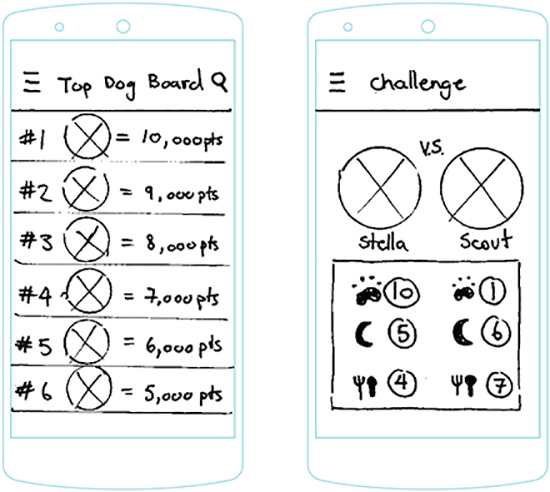 Top Dog Board
#1 = 10,000pts
#2 = 9,000pts
#3 = 8,000pts
#4 = 7,000pts
#5 = 6,000pts
#6 = 5,000pts
Challenge
V.S.
Stella Scout
10 1
5 6
4 7